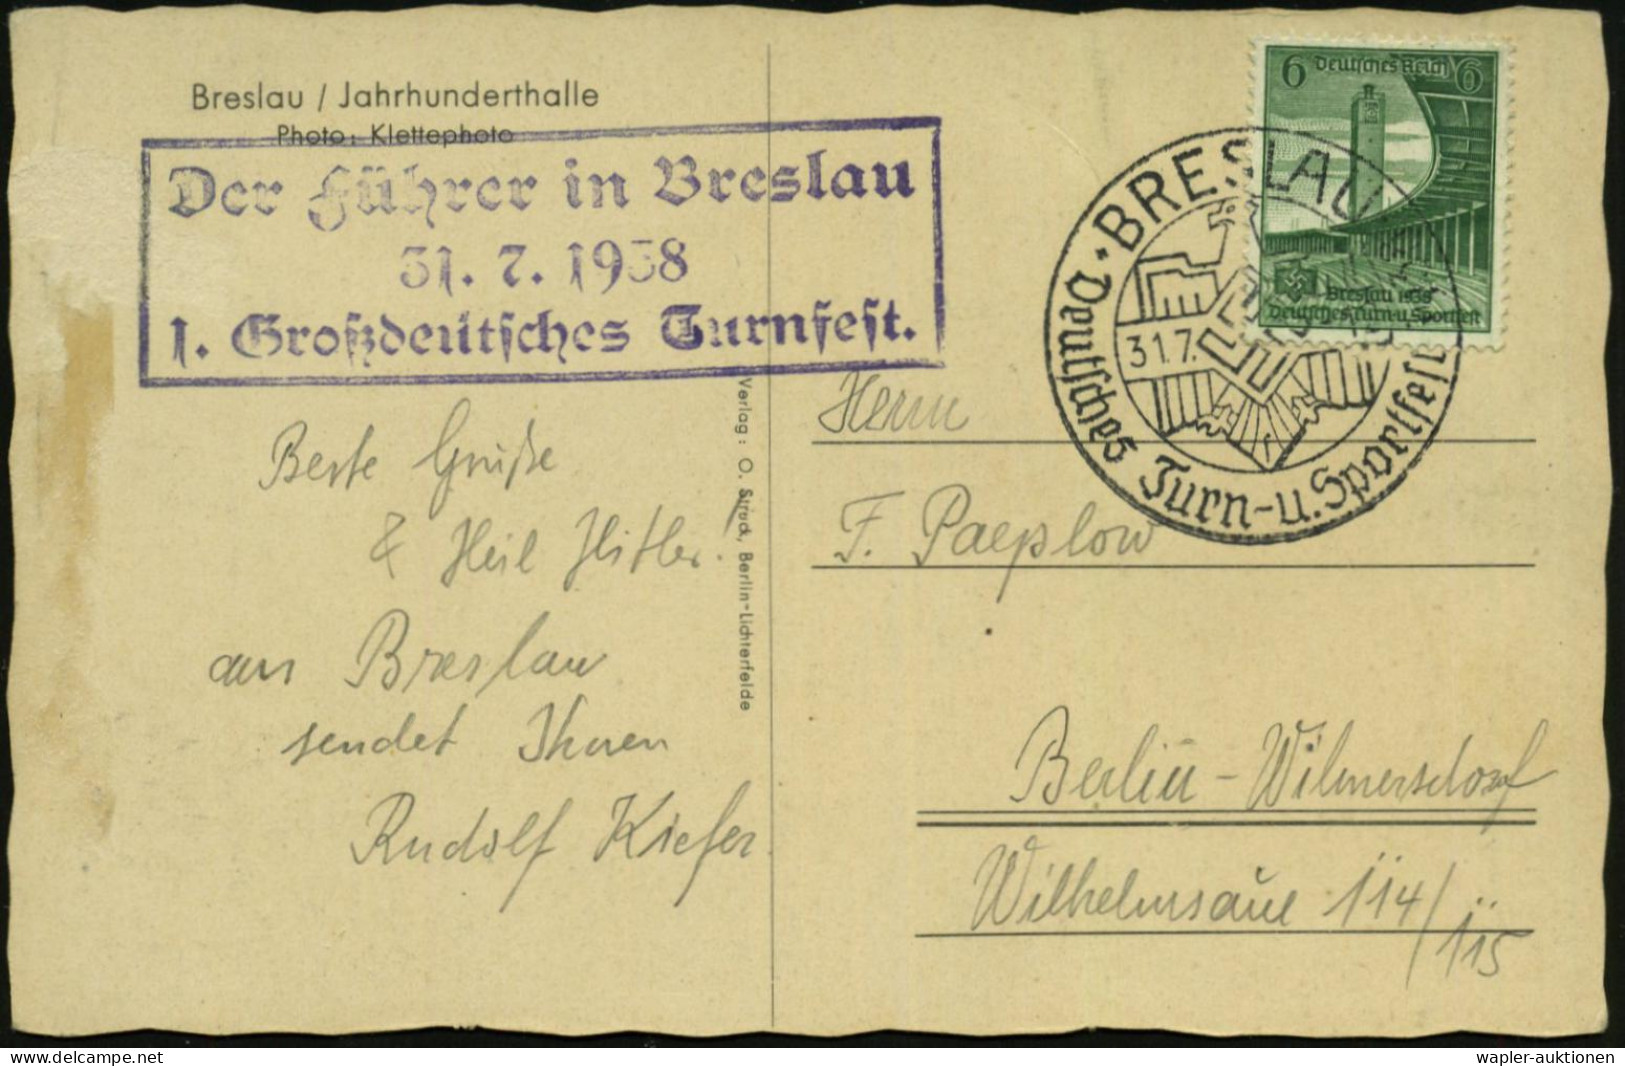 Breslau / Jahrhunderthalle
Photo: Klettephoto
Der Führer in Breslau
31. 7. 1938
1. Großdeutsches Turnfest.
Beste Grüße
& Heil Hitler.
aus Breslau
sendet Ihnen
Rudolf Kiefer
Verlag: O. Struck, Berlin-Lichterfelde
6 Deutsches Reich 6
Breslau 1938
Deutsches Turn-u. Sportfest
BRESLAU
31.7.
Deutsches Turn-u. Sportfest
Herrn
F. Paeplow
Berlin-Wilmersdorf
Wilhelmsaue 114/
115
www.delcampe.net
wapler-auktionen